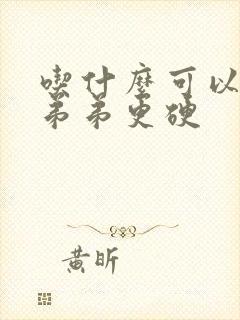 喫什麼可以
弟弟更硬
黃昕